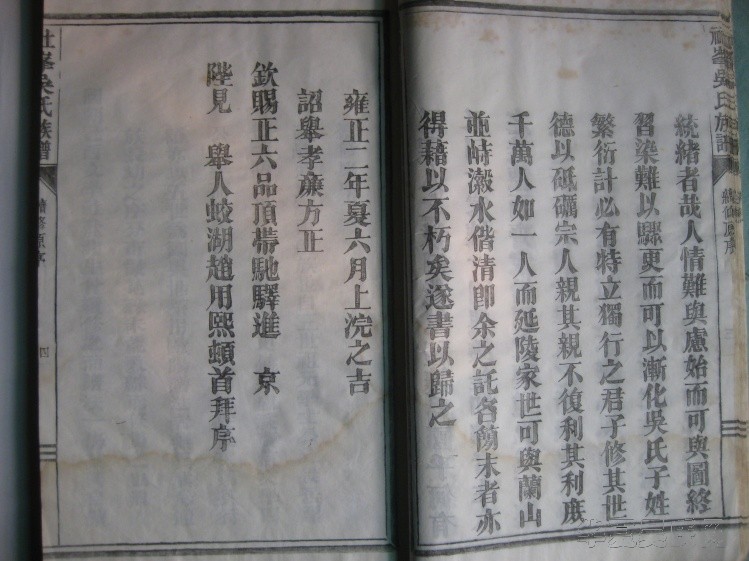 吳氏族譜
統緒者哉人情難與慮始而可與圖終
習染難以驟更而可以漸化吳氏子姓
繁衍計必有特立獨行之君子修其世
德以砥礪宗人親其親不復利其利庶
千萬人如一人而延陵家世可與蘭山
並峙瀫水偕清卽余之託名簡末者亦
得藉以不朽矣遂書以歸之
雍正二年夏六月上浣之吉
詔舉孝廉方正
欽賜正六品頂帶馳驛進 京
陛見 舉人蛟湖趙用熙頓首拜序
峯吳氏族譜
四